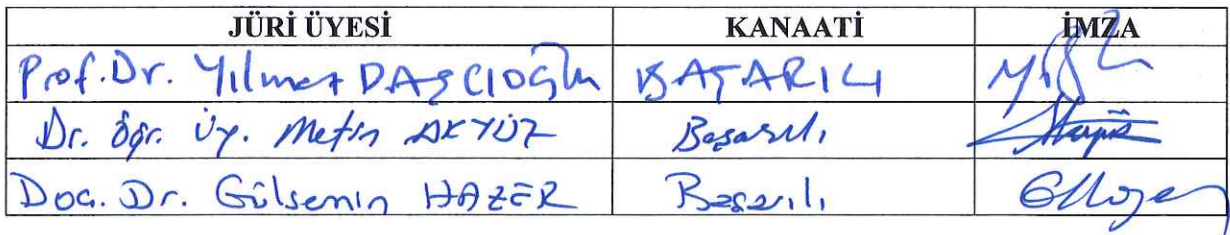 JÜRİ ÜYESİ KANAATİ İMZA
Prof.Dr. Yılmaz DAŞCIOĞLU BAŞARILI
Dr. Öğr. Üy. Metin AKYÜZ Başarılı
Doç. Dr. Gülsemin HAZER Başarılı